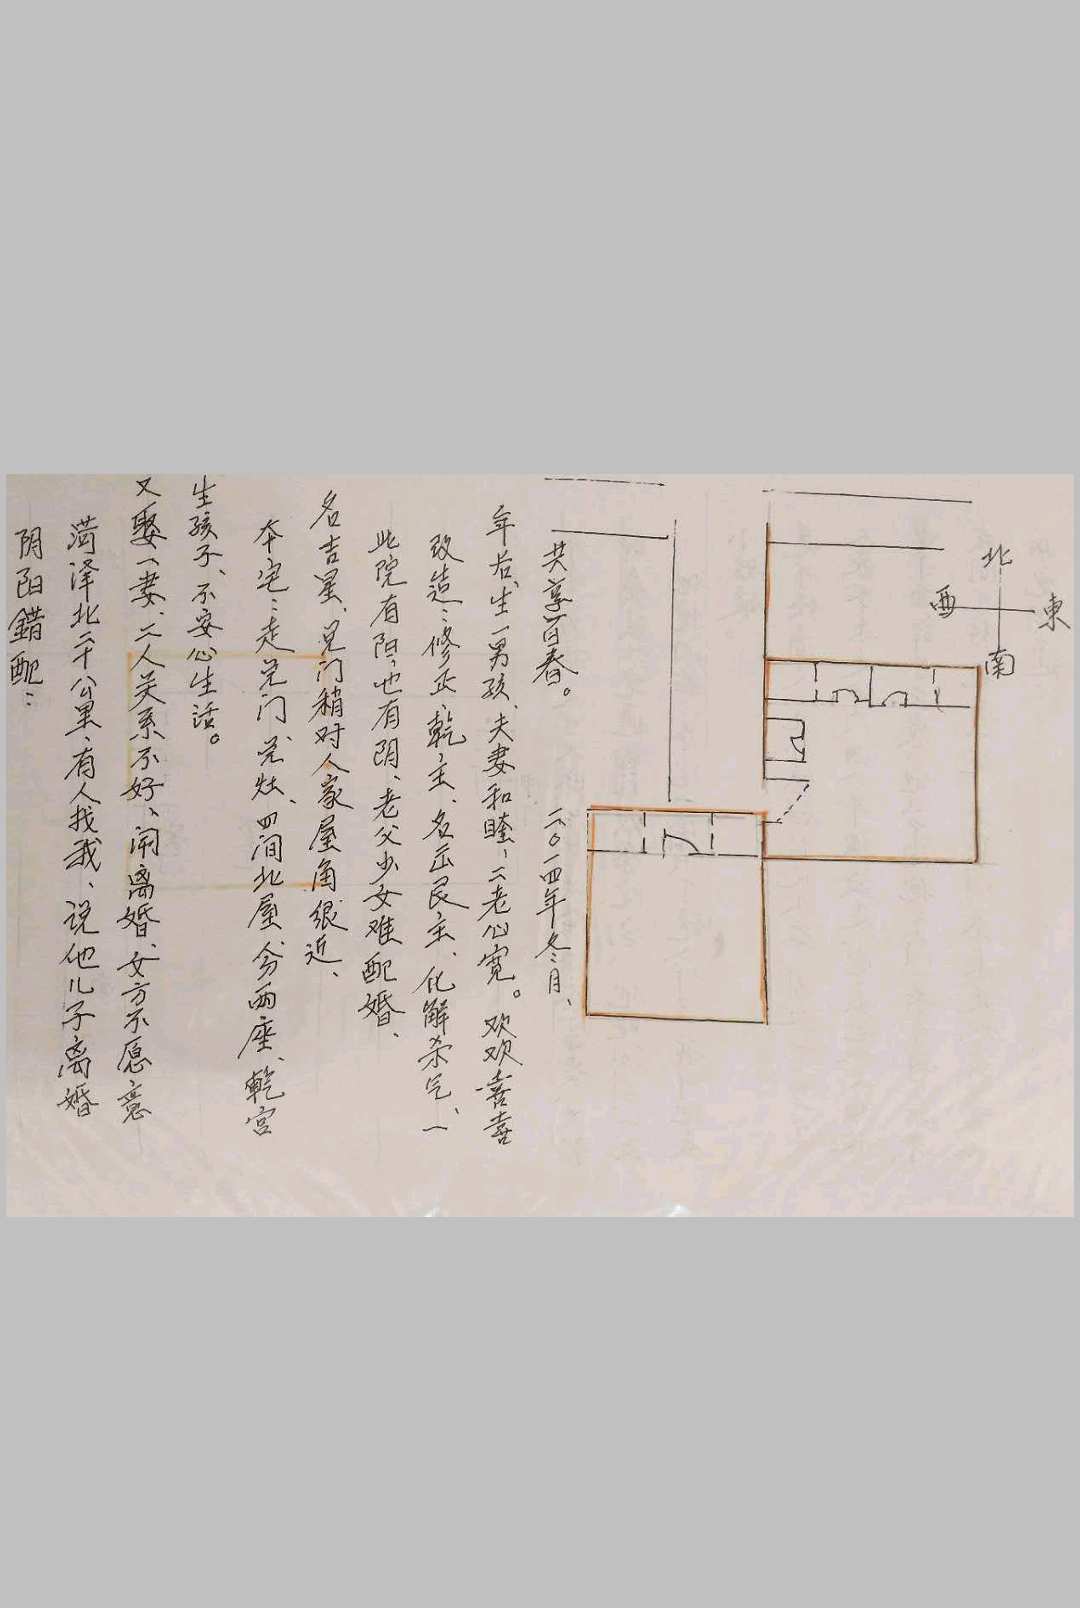 阴阳錯配：
菏泽北二十公里、有人找我、说他儿子离婚
又娶一妻、二人关系不好、闹离婚、女方不愿意
生孩子、不安心生活。
本宅：走兑门、兑灶、四间北屋、分两座、乾宫
名吉星、兑门稍对人家屋角很近、
此院有阳、也有阴、老父少女难配婚、
改造：修正、乾主、名正艮主、化解杀气、一
年后、生一男孩、夫妻和睦、二老心宽。欢欢喜喜
共享百春。 二〇一四年冬月、
北
西 東
南